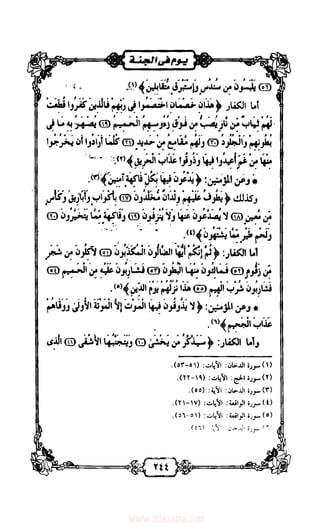 يوم فى الجنة
(٥٢) يلبسون من سندس وإستبرق متقابلين﴾(١).
أما الكفار ﴿هذان خصمان اختصموا في ربهم فالذين كفروا قطعت
لهم ثياب من نار يصب من فوق رءوسهم الحميم (١٩) يصهر به ما في
بطونهم والجلود (٢٠) ولهم مقامع من حديد (٢١) كلما أرادوا أن يخرجوا
منها من غم أعيدوا فيها وذوقوا عذاب الحريق﴾(٢).
* وعن المؤمنين: ﴿يدعون فيها بكل فاكهة آمنين﴾(٣).
وكذلك ﴿يطوف عليهم ولدان مخلدون (١٧) بأكواب وأباريق وكأس
من معين (١٨) لا يصدعون عنها ولا ينزفون (١٩) وفاكهة مما يتخيرون (٢٠)
ولحم طير مما يشتهون﴾(٤).
أما الكفار: ﴿ثم إنكم أيها الضالون المكذبون (٥١) لآكلون من شجر
من زقوم (٥٢) فمالئون منها البطون (٥٣) فشاربون عليه من الحميم (٥٤)
فشاربون شرب الهيم (٥٥) هذا نزلهم يوم الدين﴾(٥).
* وعن المؤمنين: ﴿لا يذوقون فيها الموت إلا الموتة الأولى ووقاهم
عذاب الجحيم﴾(٦).
وأما الكفار: ﴿سيذكر من يخشى (١٠) ويتجنبها الأشقى (١١) الذى
(١) سورة الدخان: الآيات: (٥١-٥٣).
(٢) سورة الحج: الآيات: (١٩-٢٢).
(٣) سورة الدخان: الآية: (٥٥).
(٤) سورة الواقعة: الآيات: (١٧-٢١).
(٥) سورة الواقعة: الآيات: (٥١-٥٦).
(٦) سورة الدخان: الآية: (٥٦).
٢٤٤